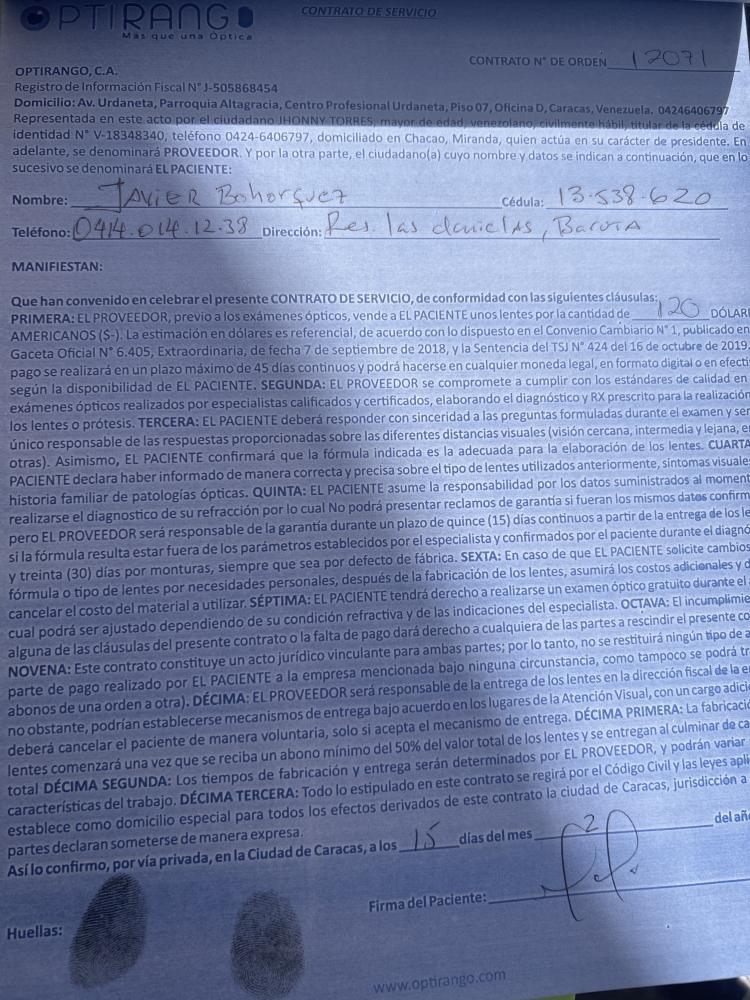 OPTIRANGO
Más que una Óptica
CONTRATO DE SERVICIO
CONTRATO N° DE ORDEN 12071
OPTIRANGO, C.A.
Registro de Información Fiscal N° J-505868454
Domicilio: Av. Urdaneta, Parroquia Altagracia, Centro Profesional Urdaneta, Piso 07, Oficina D, Caracas, Venezuela. 04246406797
Representada en este acto por el ciudadano JHONNY TORRES, mayor de edad, venezolano, civilmente hábil, titular de la cédula de
identidad N° V-18348340, teléfono 0424-6406797, domiciliado en Chacao, Miranda, quien actúa en su carácter de presidente. En
adelante, se denominará PROVEEDOR. Y por la otra parte, el ciudadano(a) cuyo nombre y datos se indican a continuación, que en lo
sucesivo se denominará EL PACIENTE:
Nombre: JAVIER Bohorquez Cédula: 13-538-620
Teléfono: 0414.014.12.38 Dirección: Res. las danielas, Baruta
MANIFIESTAN:
Que han convenido en celebrar el presente CONTRATO DE SERVICIO, de conformidad con las siguientes cláusulas:
PRIMERA: EL PROVEEDOR, previo a los exámenes ópticos, vende a EL PACIENTE unos lentes por la cantidad de 120 DÓLAR
AMERICANOS ($-). La estimación en dólares es referencial, de acuerdo con lo dispuesto en el Convenio Cambiario N° 1, publicado en
Gaceta Oficial N° 6.405, Extraordinaria, de fecha 7 de septiembre de 2018, y la Sentencia del TSJ N° 424 del 16 de octubre de 2019.
pago se realizará en un plazo máximo de 45 días continuos y podrá hacerse en cualquier moneda legal, en formato digital o en efecti
según la disponibilidad de EL PACIENTE. SEGUNDA: EL PROVEEDOR se compromete a cumplir con los estándares de calidad en
exámenes ópticos realizados por especialistas calificados y certificados, elaborando el diagnóstico y RX prescrito para la realización
los lentes o prótesis. TERCERA: EL PACIENTE deberá responder con sinceridad a las preguntas formuladas durante el examen y ser
único responsable de las respuestas proporcionadas sobre las diferentes distancias visuales (visión cercana, intermedia y lejana, e
otras). Asimismo, EL PACIENTE confirmará que la fórmula indicada es la adecuada para la elaboración de los lentes. CUARTA
PACIENTE declara haber informado de manera correcta y precisa sobre el tipo de lentes utilizados anteriormente, síntomas visuale
historia familiar de patologías ópticas. QUINTA: EL PACIENTE asume la responsabilidad por los datos suministrados al moment
realizarse el diagnostico de su refracción por lo cual No podrá presentar reclamos de garantía si fueran los mismos datos confirm
pero EL PROVEEDOR será responsable de la garantía durante un plazo de quince (15) días continuos a partir de la entrega de los le
si la fórmula resulta estar fuera de los parámetros establecidos por el especialista y confirmados por el paciente durante el diagnó
y treinta (30) días por monturas, siempre que sea por defecto de fábrica. SEXTA: En caso de que EL PACIENTE solicite cambios
fórmula o tipo de lentes por necesidades personales, después de la fabricación de los lentes, asumirá los costos adicionales y d
cancelar el costo del material a utilizar. SÉPTIMA: EL PACIENTE tendrá derecho a realizarse un examen óptico gratuito durante el
cual podrá ser ajustado dependiendo de su condición refractiva y de las indicaciones del especialista. OCTAVA: El incumplimie
alguna de las cláusulas del presente contrato o la falta de pago dará derecho a cualquiera de las partes a rescindir el presente co
NOVENA: Este contrato constituye un acto jurídico vinculante para ambas partes; por lo tanto, no se restituirá ningún tipo de a
parte de pago realizado por EL PACIENTE a la empresa mencionada bajo ninguna circunstancia, como tampoco se podrá tr
abonos de una orden a otra). DÉCIMA: EL PROVEEDOR será responsable de la entrega de los lentes en la dirección fiscal de la e
no obstante, podrían establecerse mecanismos de entrega bajo acuerdo en los lugares de la Atención Visual, con un cargo adici
deberá cancelar el paciente de manera voluntaria, solo si acepta el mecanismo de entrega. DÉCIMA PRIMERA: La fabricació
lentes comenzará una vez que se reciba un abono mínimo del 50% del valor total de los lentes y se entregan al culminar de ca
total DÉCIMA SEGUNDA: Los tiempos de fabricación y entrega serán determinados por EL PROVEEDOR, y podrán variar
características del trabajo. DÉCIMA TERCERA: Todo lo estipulado en este contrato se regirá por el Código Civil y las leyes apli
establece como domicilio especial para todos los efectos derivados de este contrato la ciudad de Caracas, jurisdicción a
partes declaran someterse de manera expresa.
Así lo confirmo, por vía privada, en la Ciudad de Caracas, a los 15 días del mes 2 del año
Firma del Paciente:
Huellas:
www.optirango.com